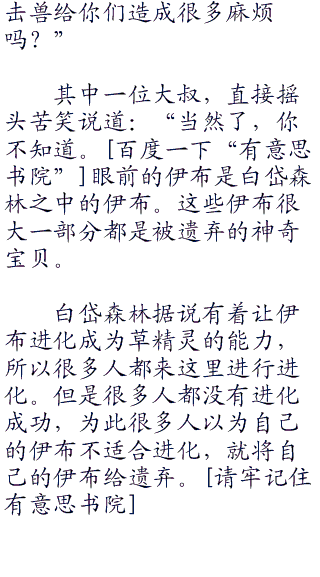 击兽给你们造成很多麻烦
吗？”
其中一位大叔，直接摇
头苦笑说道：“当然了，你
不知道。[百度一下“有意思
书院”]眼前的伊布是白岱森
林之中的伊布。这些伊布很
大一部分都是被遗弃的神奇
宝贝。
白岱森林据说有着让伊
布进化成为草精灵的能力，
所以很多人都来这里进行进
化。但是很多人都没有进化
成功，为此很多人以为自己
的伊布不适合进化，就将自
己的伊布给遗弃。[请牢记住
有意思书院]